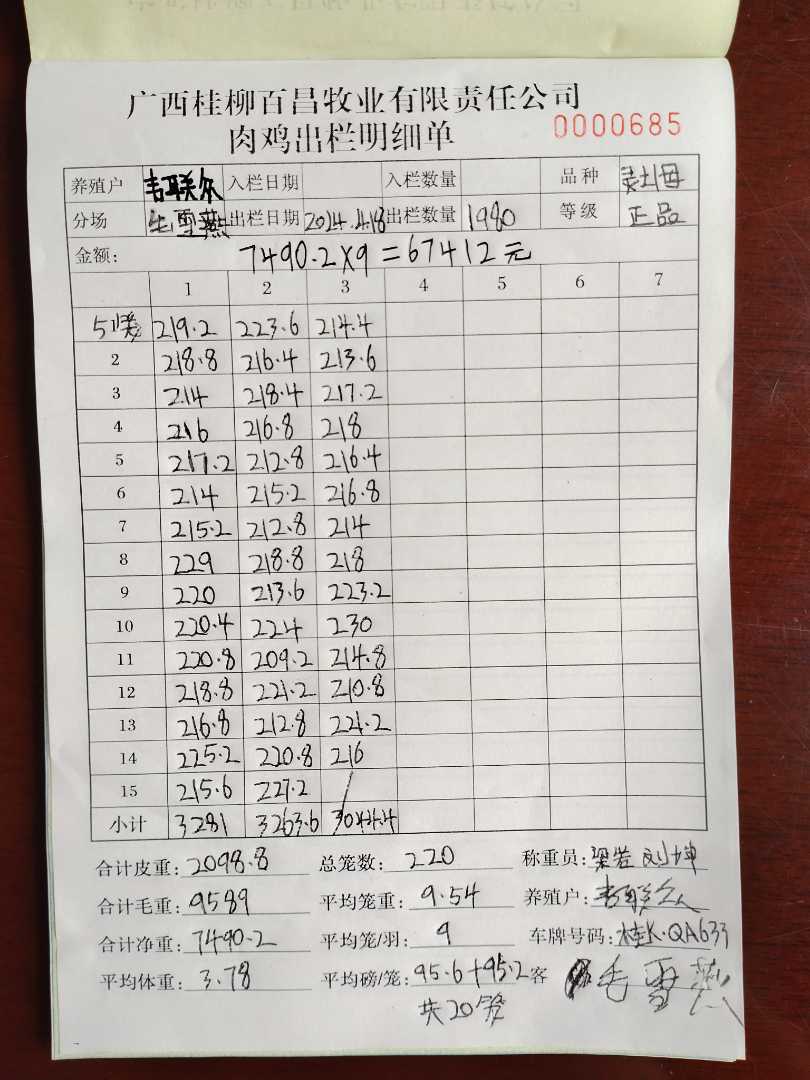 广西桂柳百昌牧业有限责任公司
肉鸡出栏明细单 0000685
养殖户 韦联尔 入栏日期 入栏数量 品种 灵土母
分场 毛雪燕 出栏日期 2024.4.18 出栏数量 1980 等级 正品
金额: 7490.2X9=67412元
1 2 3 4 5 6 7
5笼 219.2 223.6 214.4
2 218.8 216.4 213.6
3 214 218.4 217.2
4 216 216.8 218
5 217.2 212.8 216.4
6 214 215.2 216.8
7 215.2 212.8 214
8 229 218.8 218
9 220 213.6 223.2
10 220.4 224 230
11 220.8 209.2 214.8
12 218.8 221.2 210.8
13 216.8 212.8 221.2
14 225.2 220.8 216
15 215.6 227.2 /
小计 3281 3263.6 3044.4
合计皮重: 2098.8 总笼数: 220 称重员: 刘坤
合计毛重: 9589 平均笼重: 9.54 养殖户: 韦联
合计净重: 7490.2 平均笼/羽: 9 车牌号码: 桂K·QA633
平均体重: 3.78 平均磅/笼: 95.6+95.2 客 毛雪燕
共20笼